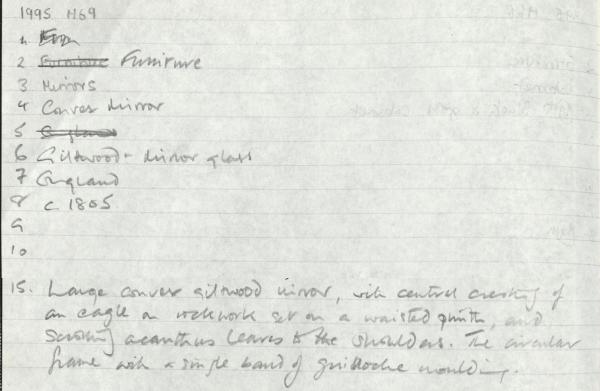 1995 M69
1
2 Furniture Furniture
3 Mirrors
4 Convex Mirror
5 England
6 Giltwood - mirror glass
7 England
8 c 1805
9
10
15. Large convex giltwood mirror, with central cresting of
an eagle on rockwork set on a waisted plinth, and
scrolling acanthus leaves to the shoulders. The circular
frame with a single band of guilloche moulding.